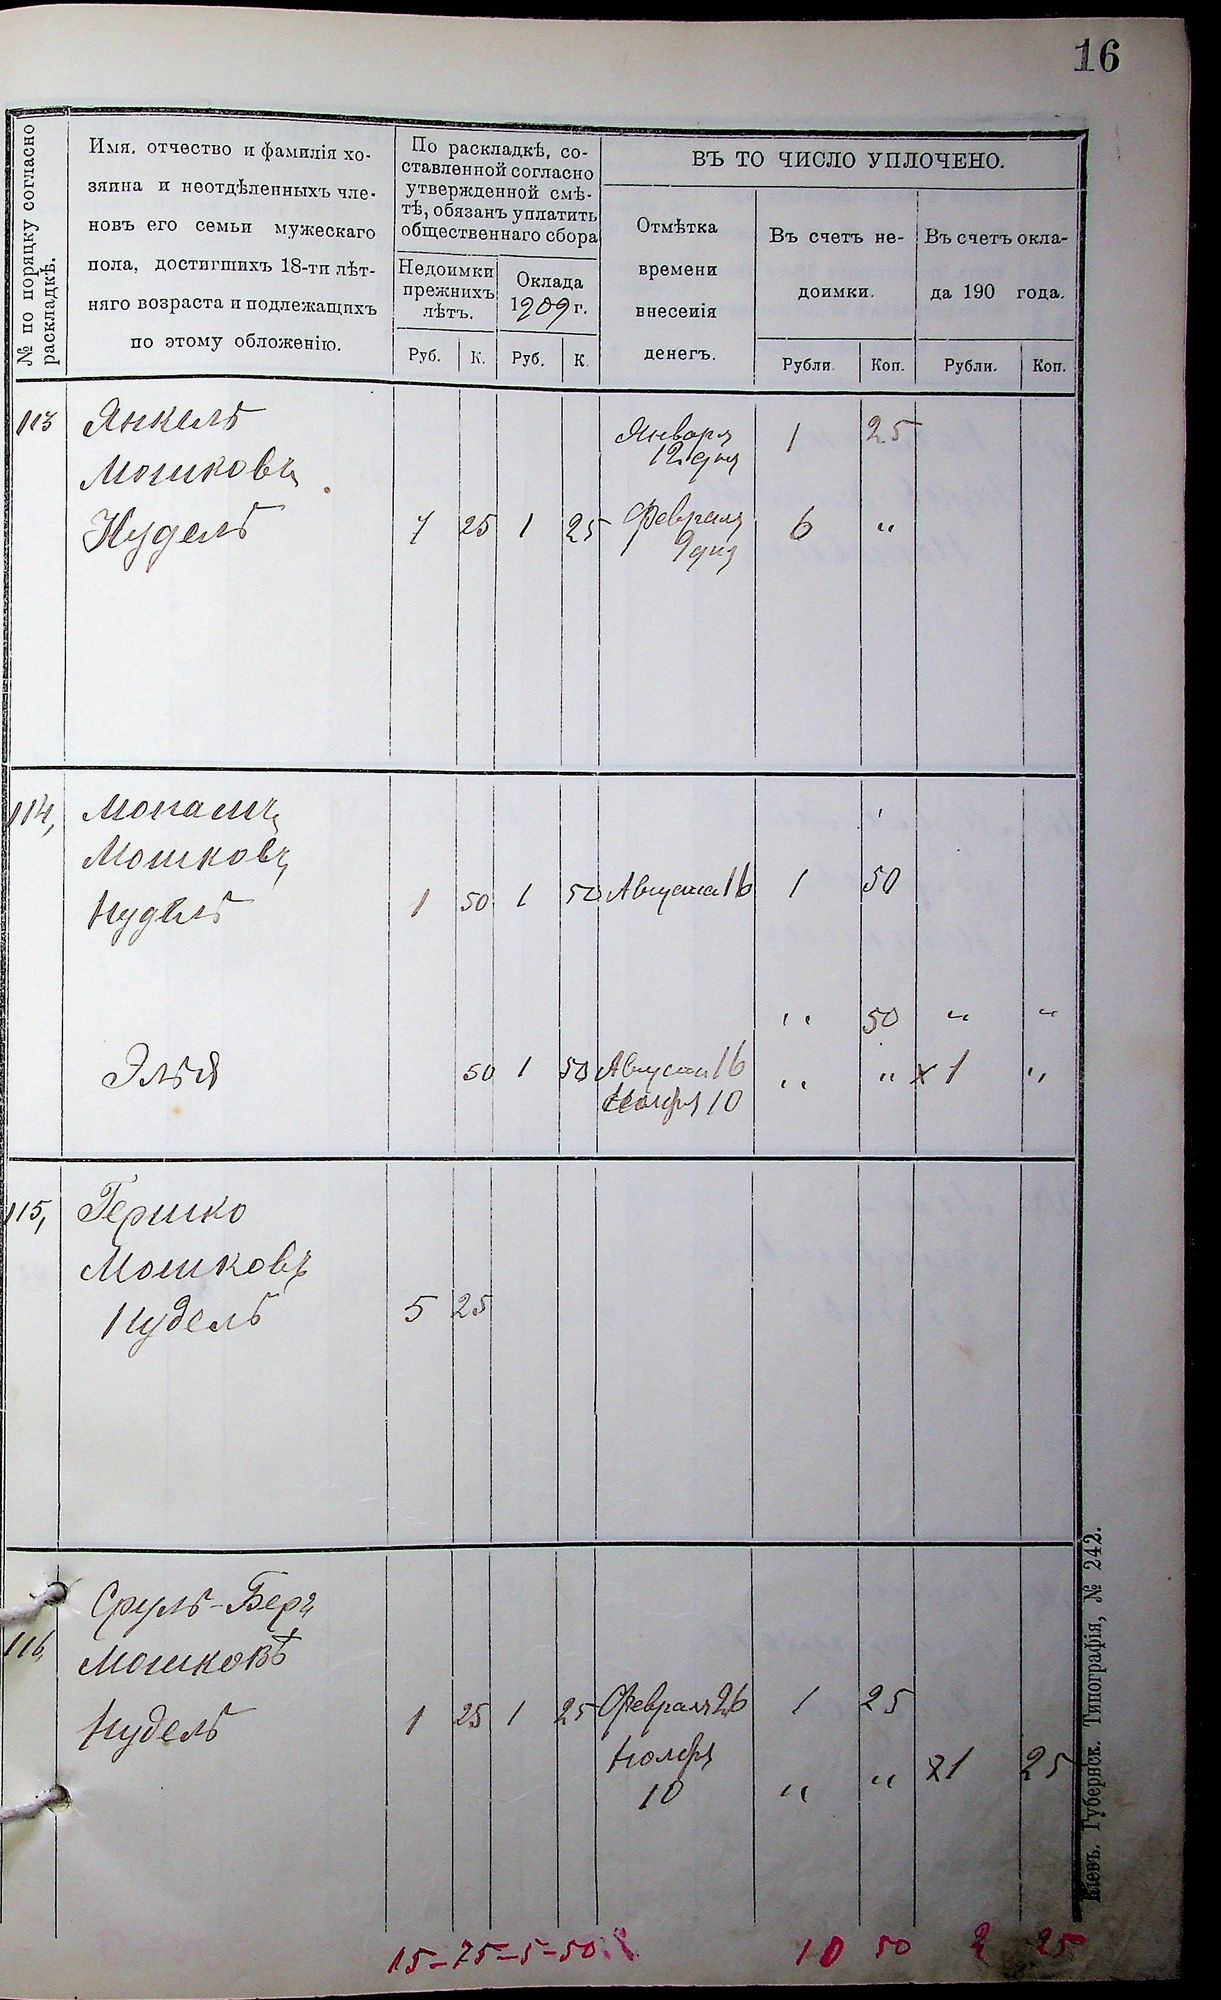 16
№ по порядку согласно
раскладкѣ.
Имя, отчество и фамилія хо-
зяина и неотдѣленныхъ чле-
новъ его семьи мужескаго
пола, достигшихъ 18-ти лѣт-
няго возраста и подлежащихъ
по этому обложенію.
По раскладкѣ, со-
ставленной согласно
утвержденной смѣ-
тѣ, обязанъ уплатить
общественнаго сбора
Недоимки
прежнихъ
лѣтъ.
Оклада
1909 г.
Руб. К. Руб. К.
ВЪ ТО ЧИСЛО УПЛОЧЕНО.
Отмѣтка
времени
внесенія
денегъ.
Въ счетъ не-
доимки.
Въ счетъ окла-
да 190 года.
Рубли. Коп. Рубли. Коп.
113 Янкель
Мошковъ
Нудель 7 25 1 25
Января
12 дня 1 25
Февраля
9 дня 6 "
114, Мошковъ
Нудель 1 50 1 50 Августа 16 1 50
" 50 " "
Элья 50 1 50 Августа 16
Ноября 10 " " x 1 "
115, Гершко
Мошковъ
Нудель 5 25
116, Сруль-Беръ
Мошковъ
Нудель 1 25 1 25 Февраля 26 1 25
Ноября
10 " " x1 25
15-25-5-50 10 50 2 25
Кіевъ. Губернск. Типографія, № 242.